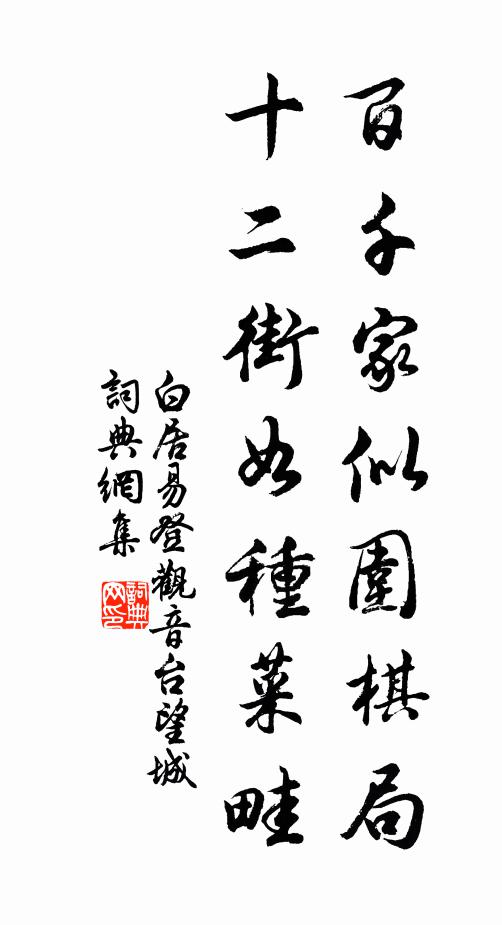 百千家似圍棋局
十二街如種菜畦
白居易登觀音台望城
詞典網集
詞典網印